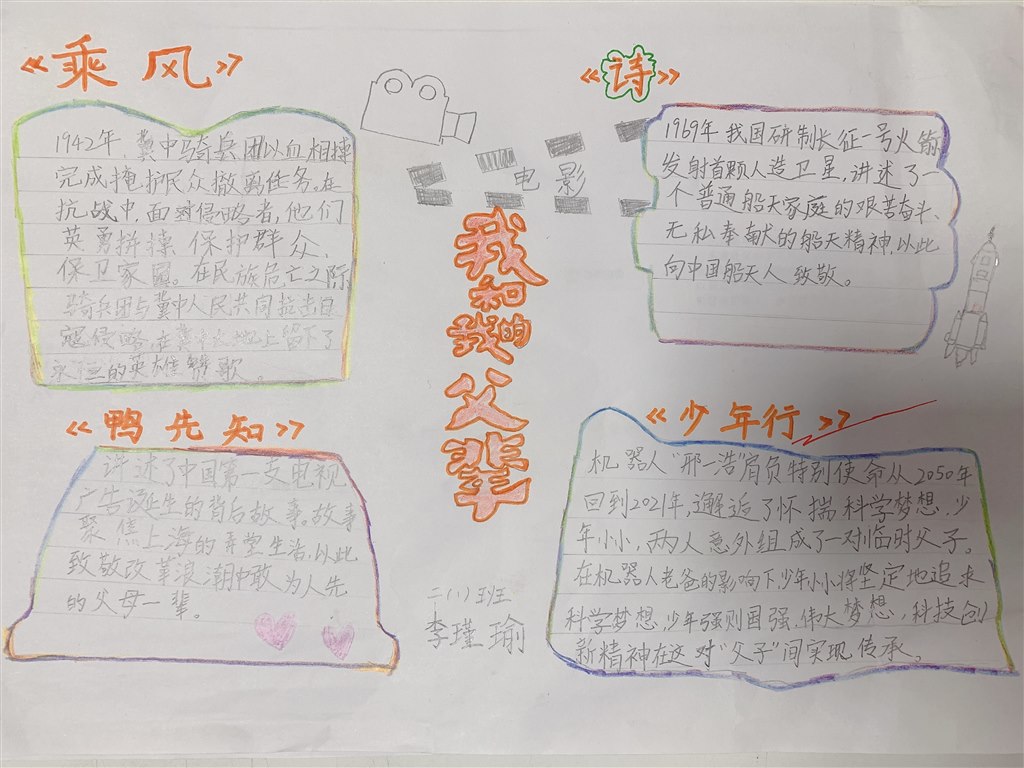 《乘风》
1942年,冀中骑兵团以血相搏
完成掩护民众撤离任务。在
抗战中,面对侵略者,他们
英勇拼搏 保护群众,
保卫家园。在民族危亡之际
骑兵团与冀中人民共同抗击日
寇侵略,在冀中大地上留下了
的英雄赞歌。
《诗》
1969年 我国研制长征一号火箭
发射首颗人造卫星,讲述了一
个普通船天家庭的艰苦奋斗、
无私奉献的船天精神,以此
向中国船天人致敬。
电影
我
和
我的
父
辈
《鸭先知》
讲述了中国第一支电视
广告诞生的背后故事。故事
聚焦上海的弄堂生活,以此
致敬改革浪潮中敢为人先
的父母一辈。
《少年行》
机器人“邢一浩”肩负特别使命从2050年
回到2021年,邂逅了怀揣科学梦想,少
年小小,两人意外组成了一对临时父子。
在机器人老爸的影响下,少年小小将坚定地追求
科学梦想,少年强则国强,伟大梦想,科技创
新精神在这对“父子”间实现传承。
二(1)班
李瑾瑜